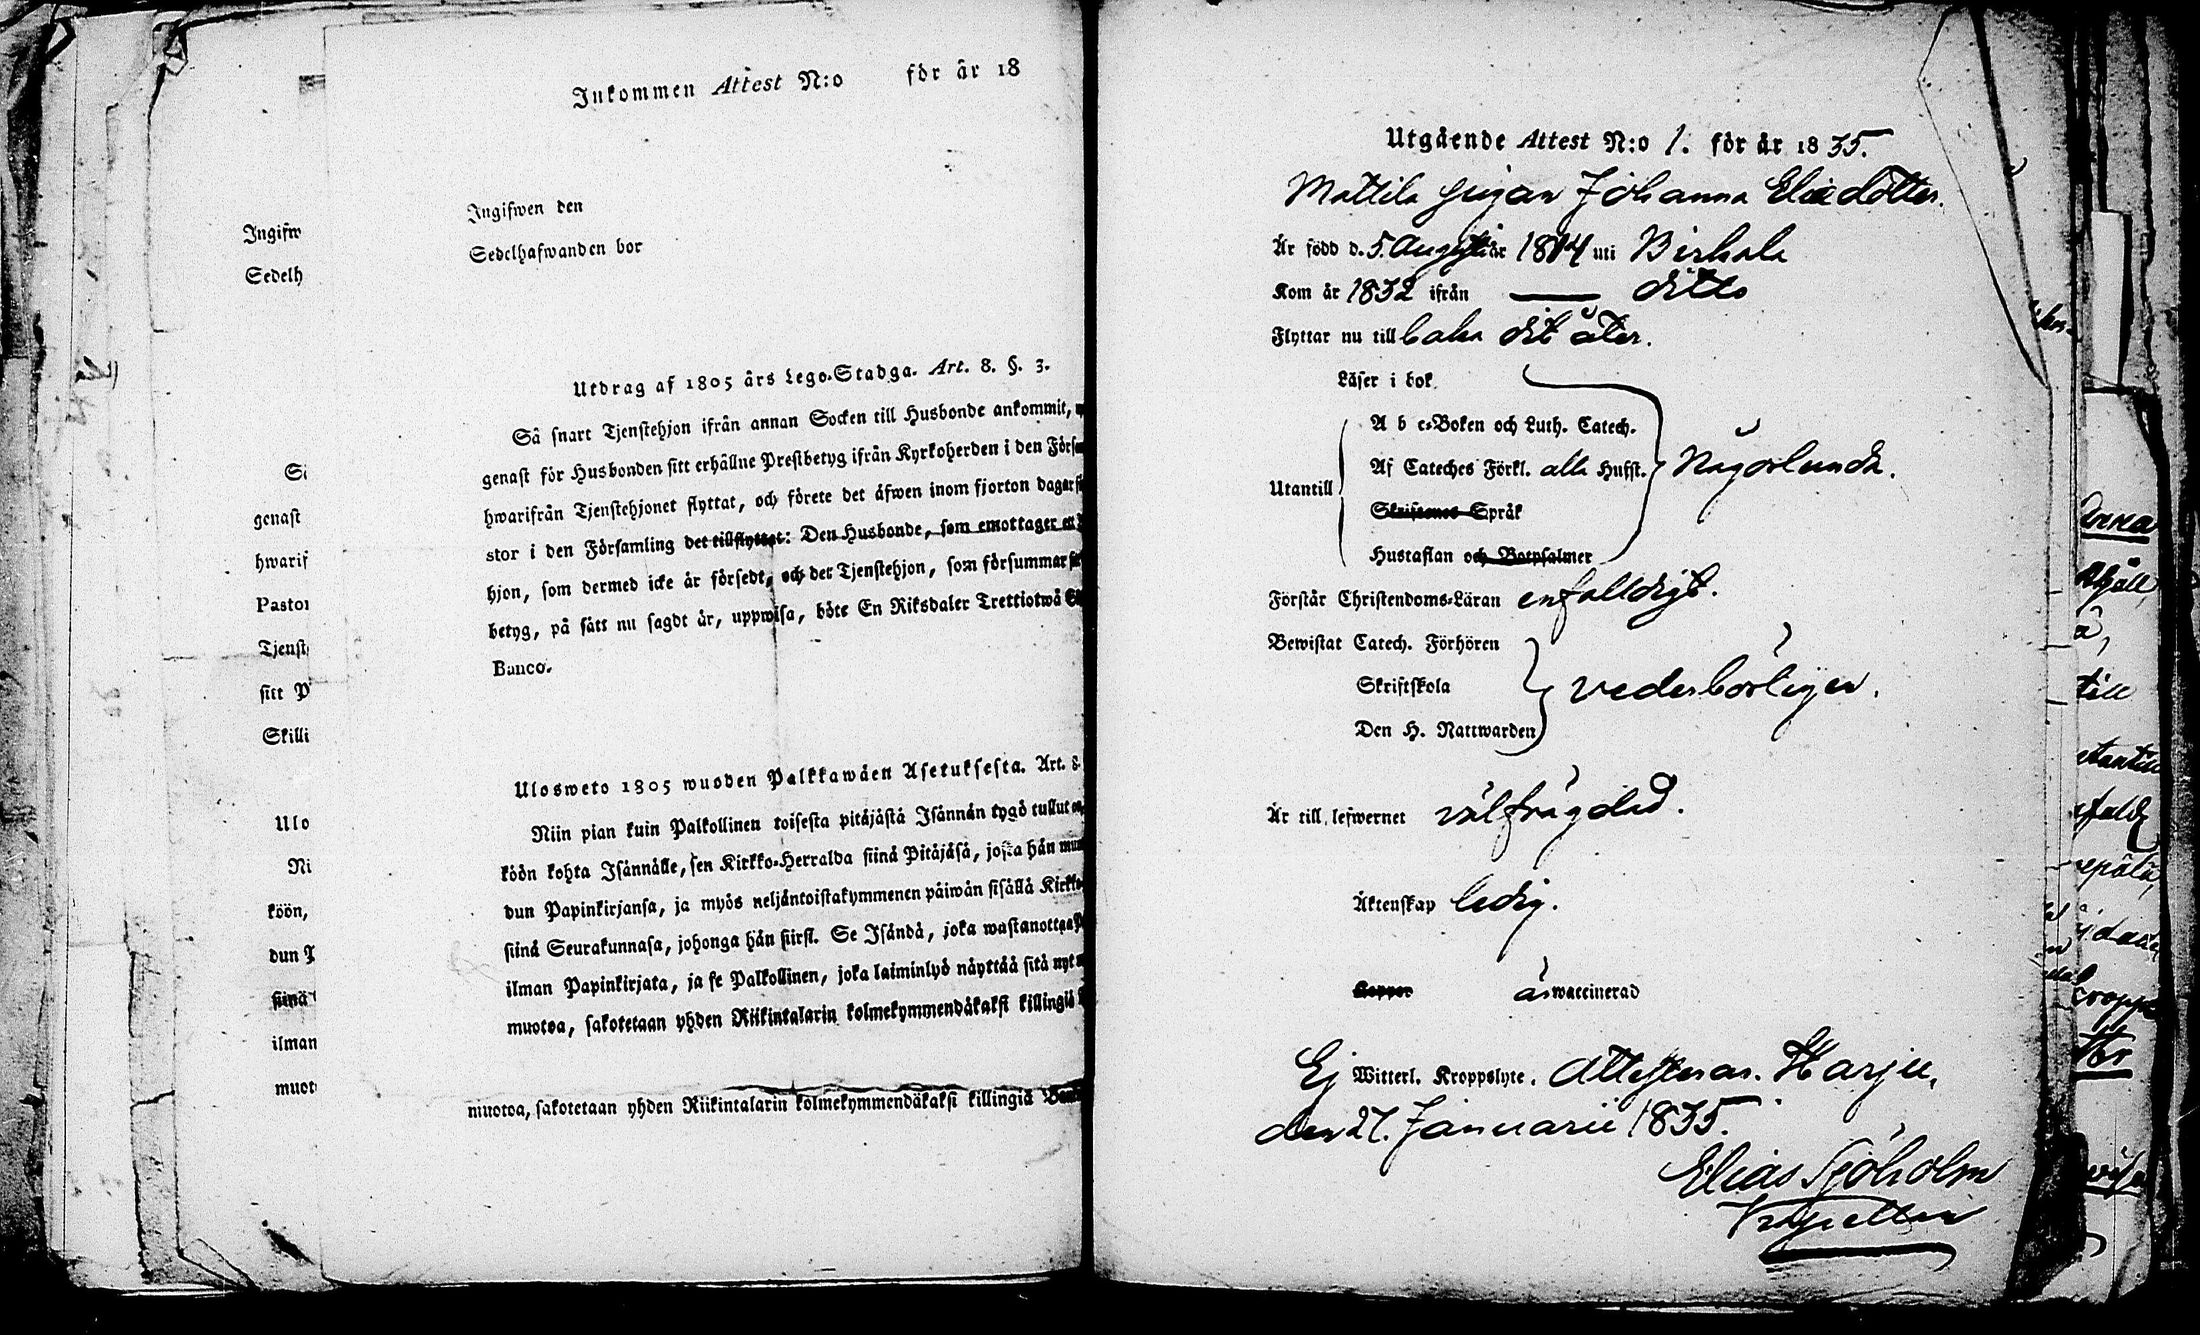 Inkommen Attest N:o för år 18
Ingifwen den
Sedelhafwanden bor
Utdrag af 1805 års Lego-Stadga. Art. 8. §. 3.
Så snart Tjenstehjon ifrån annan Socken till Husbonde ankommit,
genast för Husbonden sitt erhållne Prestbetyg ifrån Kyrkoherden i den
hwarifrån Tjenstehjonet flyttat, och förete det äfwen inom fjorton dagar
stor i den Församling det tillflyttat: Den Husbonde, som emottager
hjon, som dermed icke är försedt, och det Tjenstehjon, som försummar
betyg, på sätt nu sagdt är, uppwisa, böte En Riksdaler Trettiotwå
Banco.
Ulosweto 1805 wuoden Palkkawäen Asetuksesta. Art. 8.
Niin pian kuin Palkollinen toisesta pitäjästä Isännän tygö tullut
köön kohta Isännälle, sen Kirkko-Herralda siinä Pitäjäsä, josta hän
dun Papinkirjansa, ja myös neljäntoistakymmenen päiwän sisällä
siinä Seurakunnasa, johonga hän siirsi. Se Isändä, joka wastanottaa
ilman Papinkirjata, ja se Palkollinen, joka laiminlyö näyttää sitä nyt
muotoa, sakotetaan yhden Riikintalarin kolmekymmendäkaksi killingiä
muotoa, sakotetaan yhden Riikintalarin kolmekymmendäkaksi killingiä
Ingifw
Sedelh
genast
hwarif
Pastor
Tjenst
sitt P
Skilli
Ulo
Ni
köön,
dun P
siinä
ilman
muot
Utgående Attest N:o 1. för år 1835.
Mattila pigan Johanna Eliædotter.
Är född d. 5. Augusti år 1814 uti Birkala
Kom år 1832 ifrån — ditto
Flyttar nu till baka dit åter.
Läser i bok
A b c-Boken och Luth. Catech.
Utantill Af Cateches Förkl. alla Hufst. Någorlunda.
Skriftenes Språk
Hustaflan och Botpsalmer
Förstår Christendoms-Läran enfalldigt.
Bewistat Catech. Förhören
Skriftskola vederbörligen.
Den H. Nattwarden
Är till lefwernet välfrägdad.
Äktenskap ledig.
Koppor är waccinerad
Ej Witterl. Kroppslyte. Attesteras. Harju.
den 27. Januarii 1835.
Elias Sjöholm
Kapellan